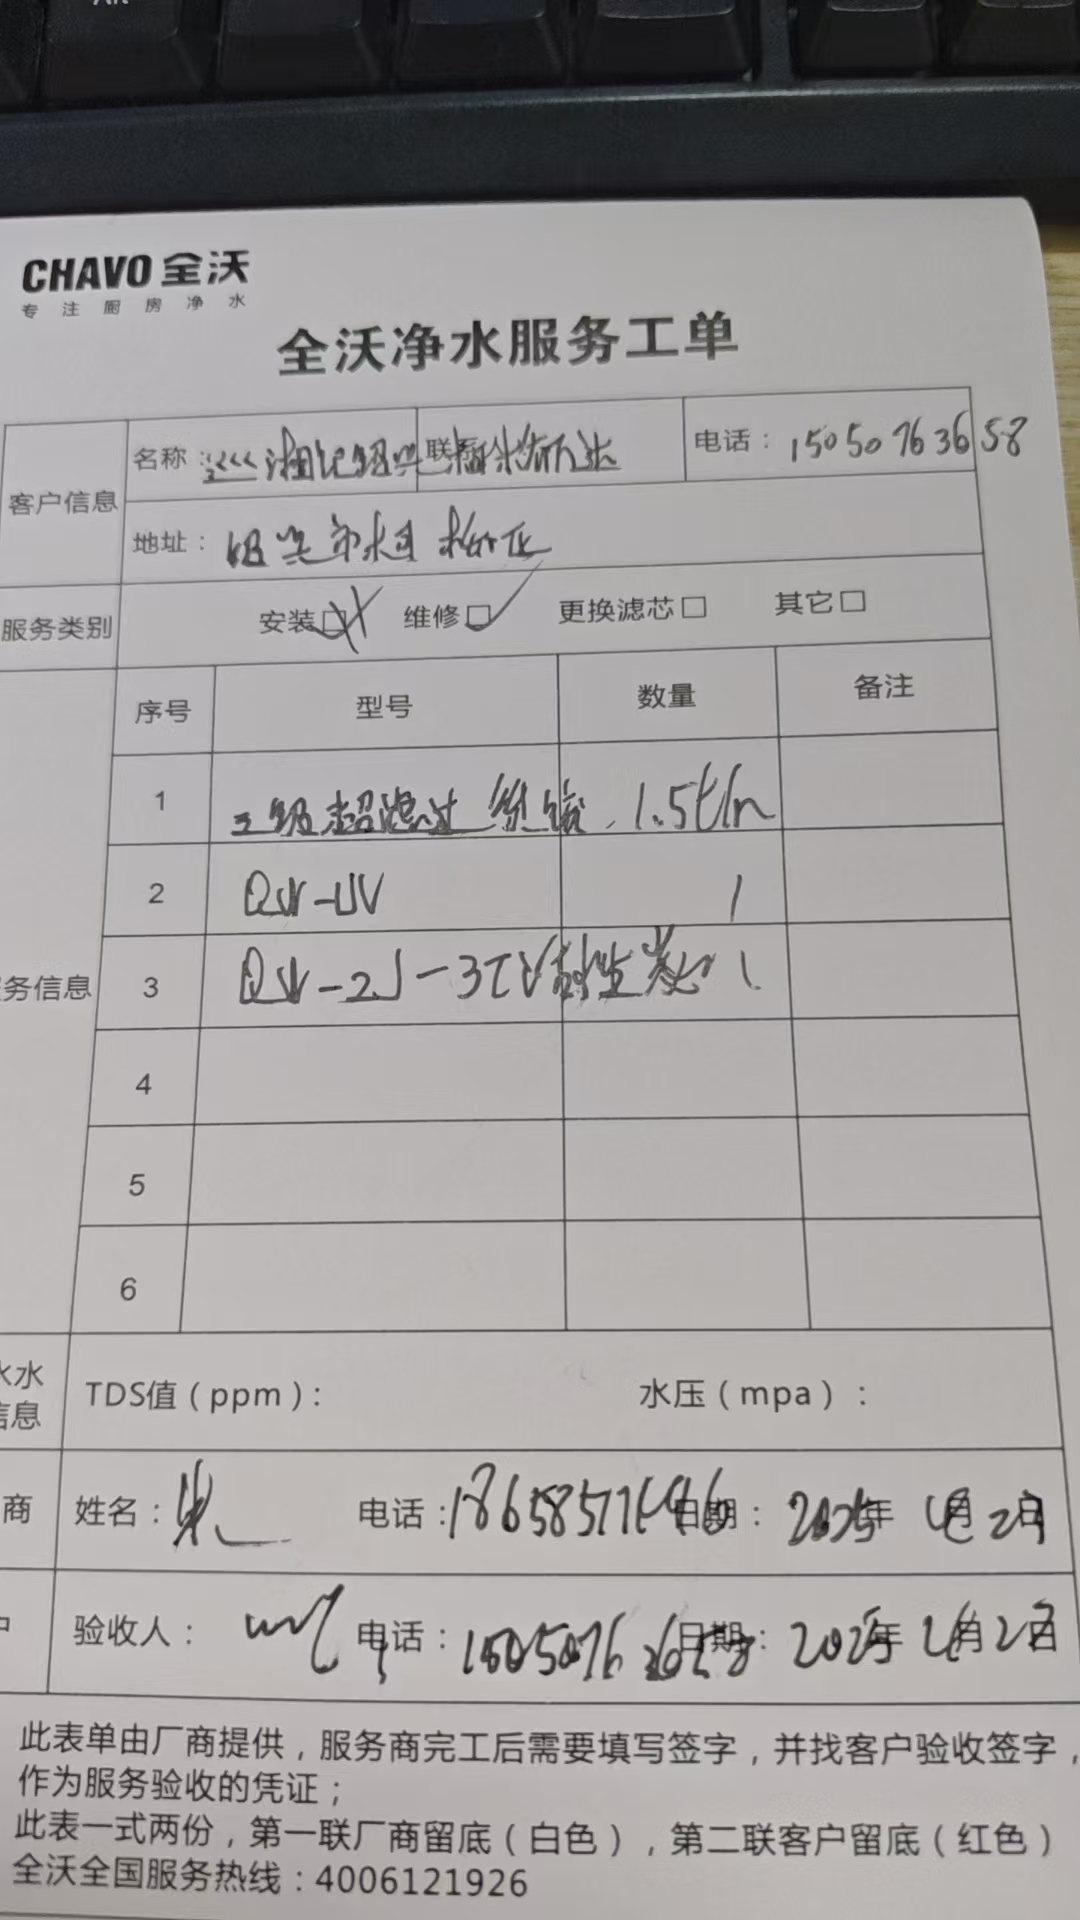 CHAVO 全沃
专注厨房净水
全沃净水服务工单
客户信息 名称： 湘记绍兴 柯桥万达 电话：15050763658
地址：绍兴市柯桥区
服务类别 安装□ 维修□ 更换滤芯□ 其它□
序号 型号 数量 备注
1 三级超滤过 1.5t/h
2 QW-UV 1
务信息 3 QW-2J-3T活性炭 1
4
5
6
水水
信息
TDS值（ppm）： 水压（mpa）：
商 姓名： 电话： 日期：2025年 月 日
户 验收人： 电话：15050763658 日期：2025年 月 日
此表单由厂商提供，服务商完工后需要填写签字，并找客户验收签字，
作为服务验收的凭证；
此表一式两份，第一联厂商留底（白色），第二联客户留底（红色）
全沃全国服务热线：4006121926